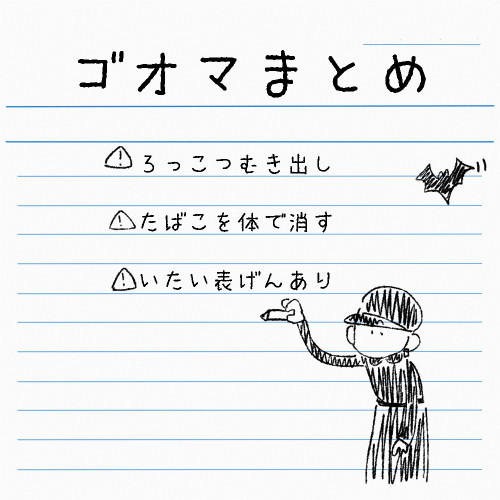 ゴオマまとめ
ろっこつむき出し
たばこを体で消す
いたい表げんあり